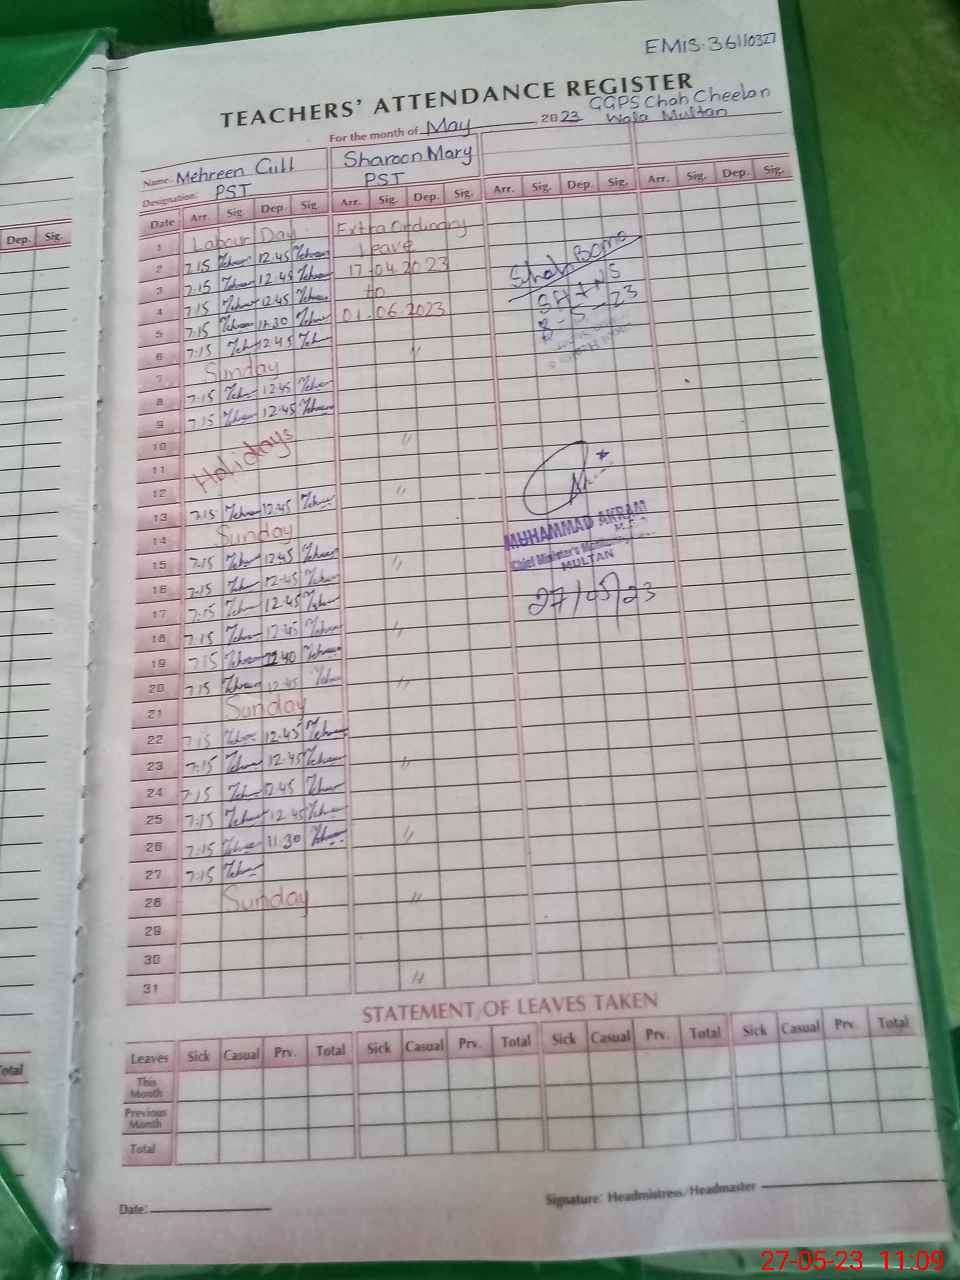 EMIS. 36110327
TEACHERS' ATTENDANCE REGISTER
GGPS Chah Cheelan
Wala Multan
For the month of May 2023
Name: Mehreen Gill Sharoon Mary
Designation: PST PST
Date Arr. Sig. Dep. Sig. Arr. Sig. Dep. Sig. Arr. Sig. Dep. Sig. Arr. Sig. Dep. Sig.
1 Labour Day Extra Ordinary
Leave
2 7.15 12.45
17.04.2023
3 7.15 12.45
to
4 7:15 12.45
01.06.2023
5 7:15 11.30
6 7:15 12.45 "
7 Sunday
8 7.15 12.45
9 7.15 12.45
10 "
11 Holidays
12 "
13 7:15 12.45
14 Sunday
15 7.15 12.45 "
16 7.15 12.45
17 7.15 12.45
18 7.15 12.45 "
19 7.15 12.40
20 7.15 12.45 "
21 Sunday
22 7.15 12.45
23 7.15 12.45 "
24 7.15 12.45
25 7.15 12.45
26 7.15 11.30 "
27 7:15
28 Sunday "
29
30
31 "
8-5-23
MUHAMMAD AKRAM
Chief Minister's
MULTAN
27/05/23
STATEMENT OF LEAVES TAKEN
Leaves Sick Casual Prv. Total Sick Casual Prv. Total Sick Casual Prv. Total Sick Casual Prv. Total
This
Month
Previous
Month
Total
Date:
Signature: Headmistress/Headmaster
Dep. Sig.
27-05-23 11:09